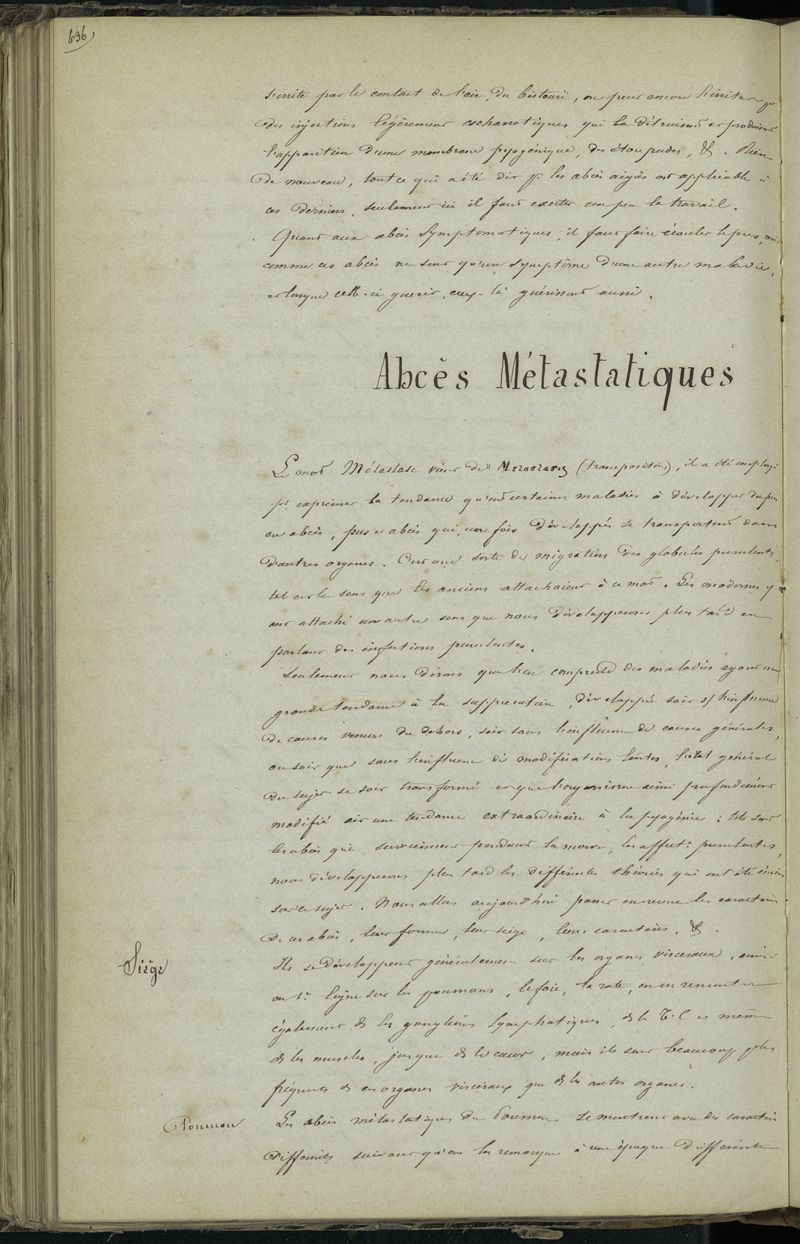 636
s'irrite par le contact de l'air, du bistouri, on peut encore l'irriter par
des injections légèrement escharrotiques qui la détruisent et produisent
l'apparition d'une membrane pyogénique, des étoupades, &. Rien
de nouveau, tout ce qui a été dit pr les abcès aigus est applicable à
ces derniers, seulement ici il faut exciter un peu le travail.
Quant aux abcès symptomatiques, il faut faire écouler le pus, mais
comme ces abcès ne sont qu'un symptôme d'une autre maladie,
et lorsque celle-ci guérit, ceux-là guérissent aussi.
Abcès Métastatiques
Le mot Métastase vient de Μεταστασις (transposition), il a été employé
pr exprimer la tendance qu'ont certaines maladies à développer du pus
ou abcès, pus et abcès qui, une fois développés se transportent dans
d'autres organes. C'est une sorte de migration des globules purulents,
tel est le sens que les anciens attachaient à ce mot. Les modernes y
ont attaché un autre sens que nous développerons plus tard en
parlant des infections purulentes.
Seulement nous dirons que l'on comprend des maladies ayant une
grande tendance à la suppuration, développée soit s/ l'influence
de causes venues du dehors, soit sous l'influence de causes générales,
ou soit que sous l'influence de modifications lentes, l'état général
du sujet se soit transformé et que l'organisme ainsi profondément
modifié ait une tendance extraordinaire à la pyogénie : tels sont
les abcès qui surviennent pendant la morve, les affect: purulentes,
nous développerons plus tard les différentes théories qui ont été émises
sur ce sujet. Nous allons aujourd'hui passer en revue les caractères
de ces abcès, leur forme, leur siège, leurs caractères, &.
Siège
Ils se développent généralement sur les organes viscéraux, ainsi
en 1re ligne sur les poumons, le foie, la rate, on en rencontre
également ds les ganglions lymphatiques, ds le T.C et même
ds les muscles, jusque ds le cœur, mais ils sont beaucoup plus
fréquents ds ces organes viscéraux que ds les autres organes.
Poumon
Les abcès métastatiques du Poumon se montrent avec des caractères
différents suivant qu'on les remarque à une époque différente